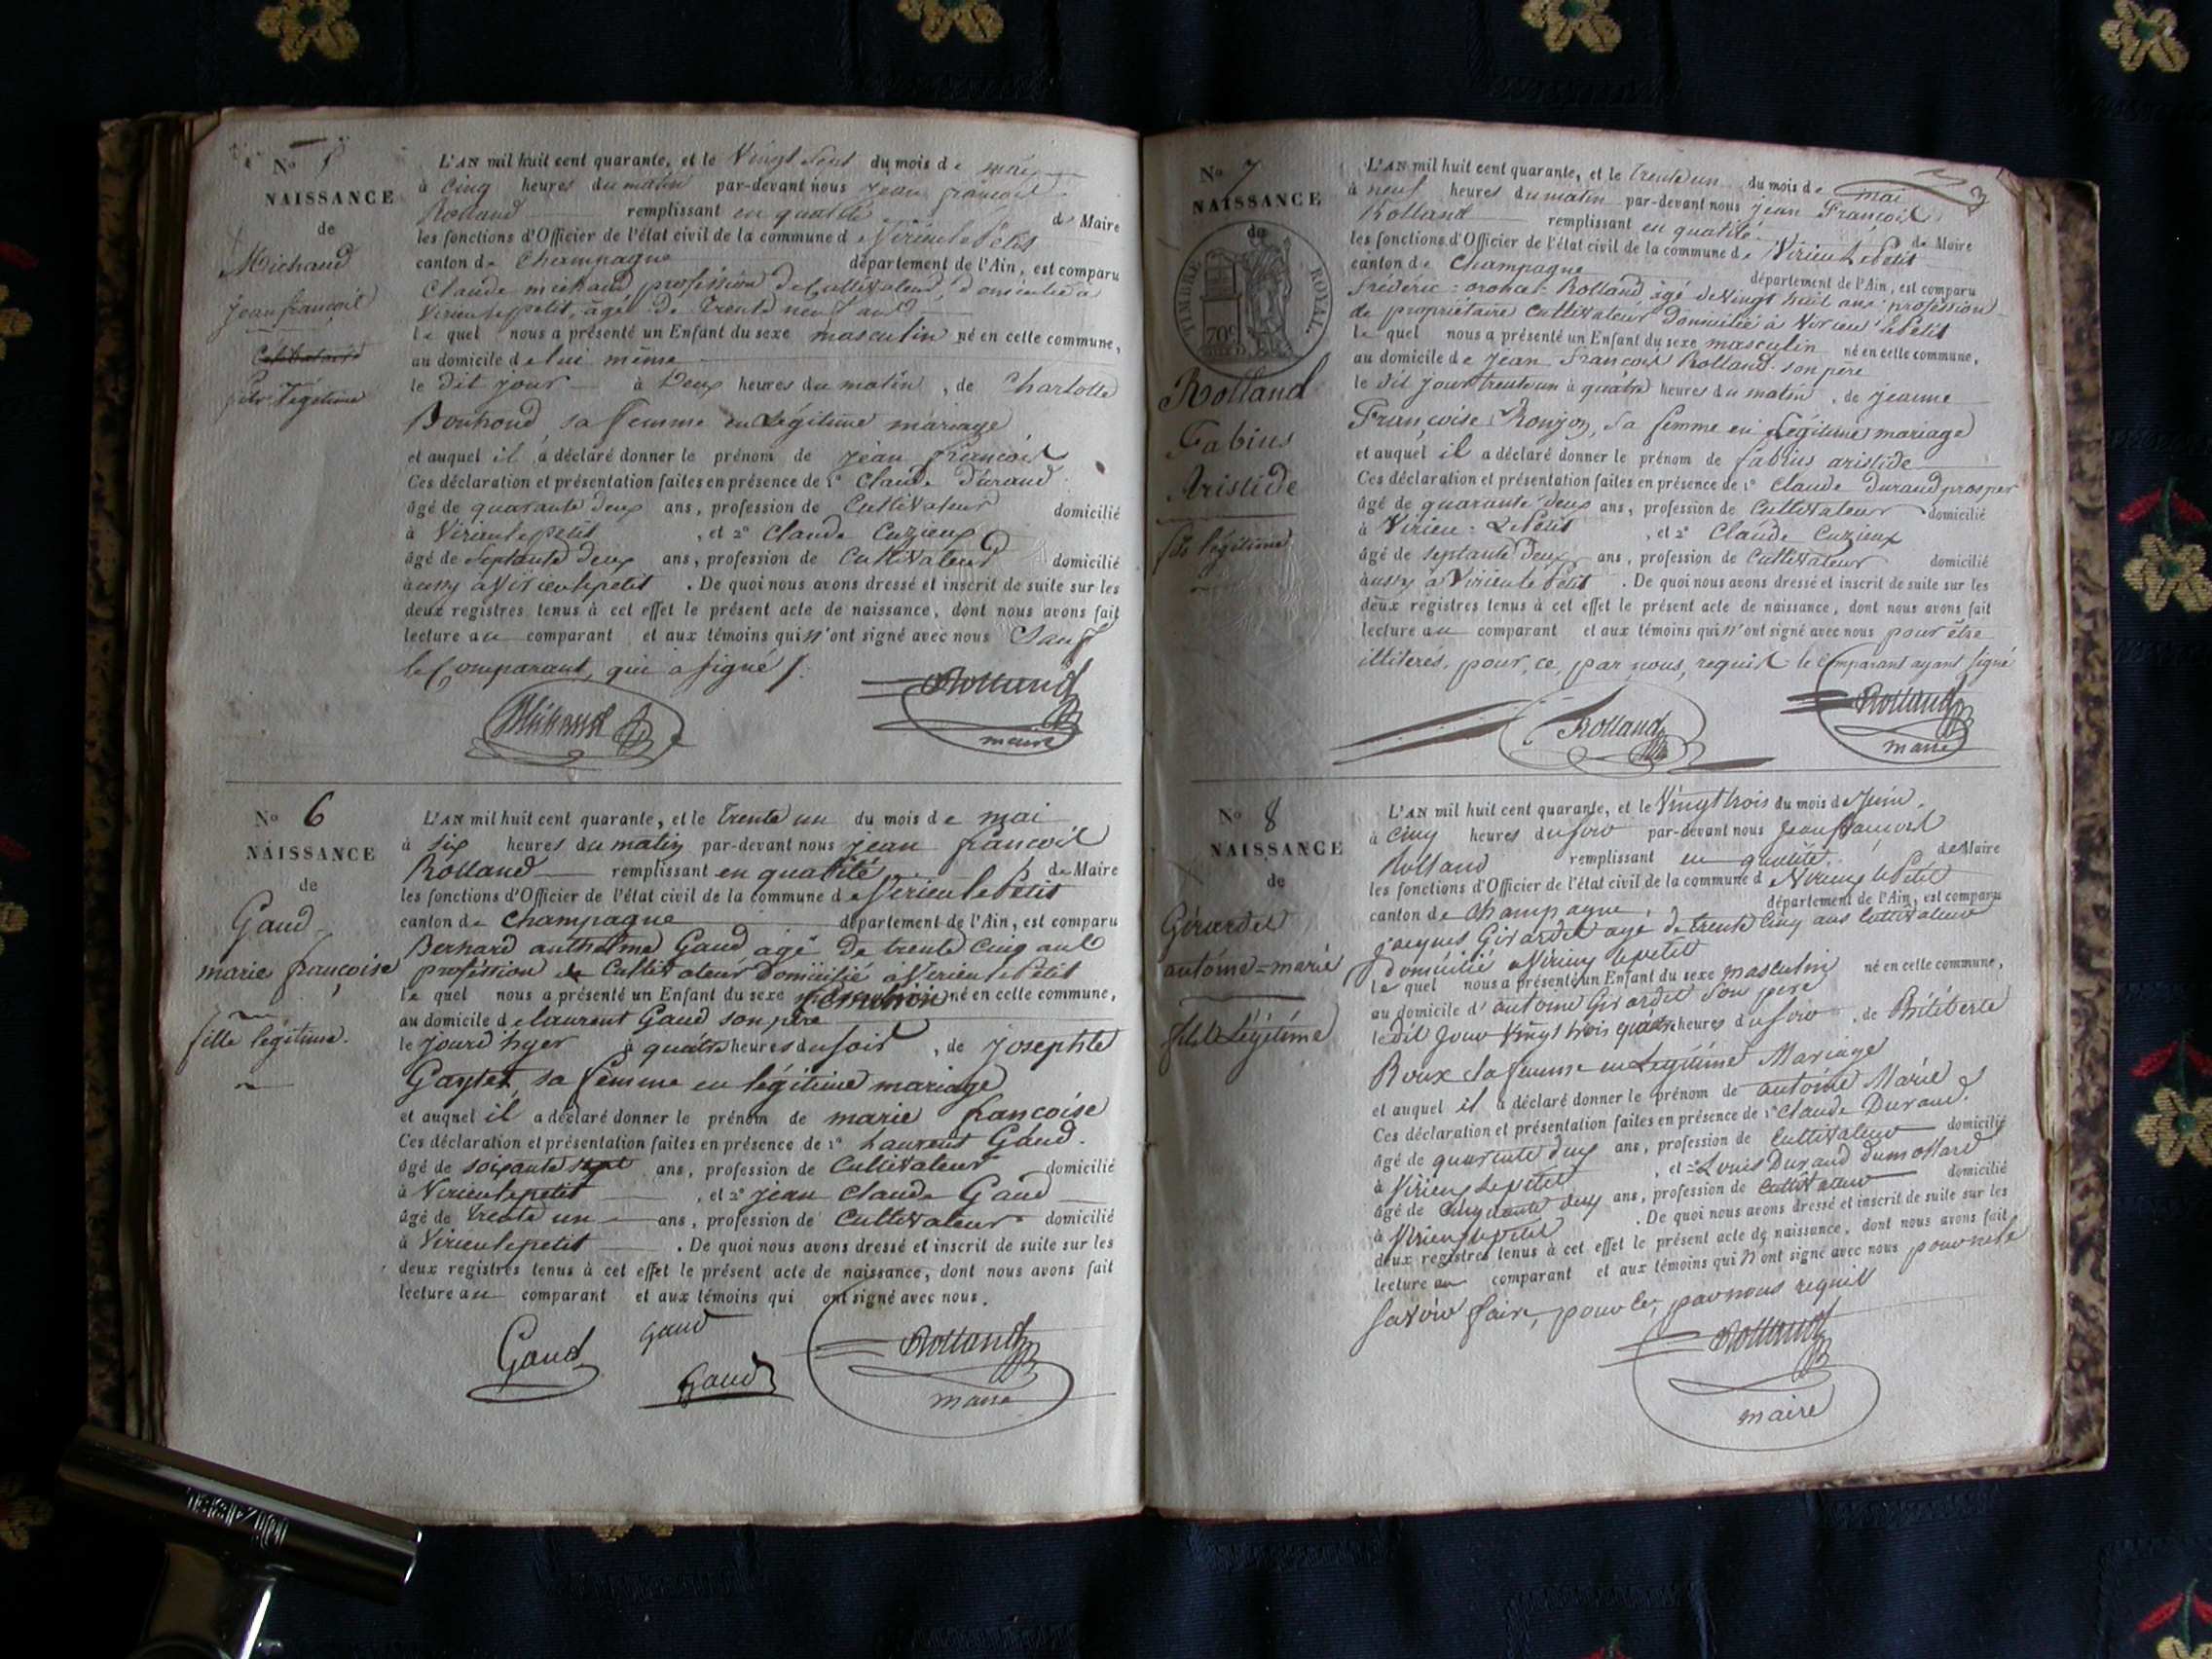 No 5
NAISSANCE
de
Michaud
jean françois
fils légitime
L'AN mil huit cent quarante, et le Vingt Sept du mois de mai
à Cinq heures du matin par-devant nous jean françois
Rolland remplissant en qualité de Maire
les fonctions d'Officier de l'état civil de la commune de Virieu le Petit
canton de Champagne département de l'Ain, est comparu
Claude michaud profession de Cultivateur, domicilié à
Virieu le petit, âgé de trente neuf ans
le quel nous a présenté un Enfant du sexe masculin né en cette commune,
au domicile de lui même
le dit jour à Deux heures du matin, de Charlotte
sa femme en Légitime mariage
et auquel il a déclaré donner le prénom de jean françois
Ces déclaration et présentation faites en présence de 1° Claude Durand
âgé de quarante deux ans, profession de Cultivateur domicilié
à Virieu le petit, et 2° Claude Cuzieux
âgé de Septante deux ans, profession de Cultivateur domicilié
aussy à Virieu le petit. De quoi nous avons dressé et inscrit de suite sur les
deux registres tenus à cet effet le présent acte de naissance, dont nous avons fait
lecture au comparant et aux témoins qui n'ont signé avec nous Sauf
le Comparant, qui a signé /.
Michaud Rolland
maire
No 6
NAISSANCE
de
Gaud
marie françoise
fille légitime.
L'AN mil huit cent quarante, et le trente un du mois de mai
à six heures du matin par-devant nous jean françois
Rolland remplissant en qualité de Maire
les fonctions d'Officier de l'état civil de la commune de Virieu le Petit
canton de Champagne département de l'Ain, est comparu
Bernard anthelme Gaud âgé de trente Cinq ans
profession de Cultivateur domicilié à Virieu le Petit
le quel nous a présenté un Enfant du sexe féminin né en cette commune,
au domicile de laurent Gaud son père
le jourd'hyer à quatre heures du soir, de josephte
sa femme en légitime mariage
et auquel il a déclaré donner le prénom de marie françoise
Ces déclaration et présentation faites en présence de 1° Laurent Gaud.
âgé de soixante sept ans, profession de Cultivateur domicilié
à Virieu le petit, et 2° jean Claude Gaud
âgé de trente un ans, profession de Cultivateur domicilié
à Virieu le petit. De quoi nous avons dressé et inscrit de suite sur les
deux registres tenus à cet effet le présent acte de naissance, dont nous avons fait
lecture au comparant et aux témoins qui ont signé avec nous.
Gaud Gaud Rolland
Gaud
maire
No 7
NAISSANCE
de
TIMBRE ROYAL
70c
Rolland
Fabius
Aristide
fils légitime
3
L'AN mil huit cent quarante, et le trente un du mois de mai
à neuf heures du matin par-devant nous jean François
Rolland remplissant en qualité de Maire
les fonctions d'Officier de l'état civil de la commune de Virieu Le Petit
canton de Champagne département de l'Ain, est comparu
fréderic Rolland, âgé de Vingt huit ans profession
de propriétaire Cultivateur domicilié à Virieu le Petit
le quel nous a présenté un Enfant du sexe masculin né en cette commune,
au domicile de jean François Rolland son père
le dit jour trente un à quatre heures du matin, de jeanne
Françoise Ronjon, sa femme en Légitime mariage
et auquel il a déclaré donner le prénom de fabius aristide
Ces déclaration et présentation faites en présence de 1° Claude Durand prosper
âgé de quarante deux ans, profession de Cultivateur domicilié
à Virieu Le Petit, et 2° Claude Cuzieux
âgé de septante deux ans, profession de Cultivateur domicilié
aussy à Virieu le Petit. De quoi nous avons dressé et inscrit de suite sur les
deux registres tenus à cet effet le présent acte de naissance, dont nous avons fait
lecture au comparant et aux témoins qui n'ont signé avec nous pour être
illiterés, pour ce, par nous, requis le Comparant ayant signé
Rolland Rolland
maire
No 8
NAISSANCE
de
Girardet
antoine=marie
fils Légitime
L'AN mil huit cent quarante, et le Vingt trois du mois de Juin.
à Cinq heures du soir par-devant nous Jean françois
Rolland remplissant en qualité. de Maire
les fonctions d'Officier de l'état civil de la commune de Virieu le Petit
canton de Champagne, département de l'Ain, est comparu
jacques Girardet agé de trente Cinq ans Cultivateur
domicilié à Virieu le petit
le quel nous a présenté un Enfant du sexe masculin né en cette commune,
au domicile d'antoine Girardet Son pere
le dit Jour Vingt trois quatre heures du soir, de Philiberte
Roux Sa femme en Legitime Mariage
et auquel il a déclaré donner le prénom de antoine Marie
Ces déclaration et présentation faites en présence de 1° Claude Durand
âgé de quarente deux ans, profession de Cultivateur domicilié
à Virieu le petit, et 2° Louis Durand dumollard
âgé de Cinquante deux ans, profession de Cultivateur domicilié
à Virieu le petit. De quoi nous avons dressé et inscrit de suite sur les
deux registres tenus à cet effet le présent acte de naissance, dont nous avons fait
lecture au comparant et aux témoins qui n'ont signé avec nous pour ne le
savoir faire, pour ce, par nous requis
Rolland
maire